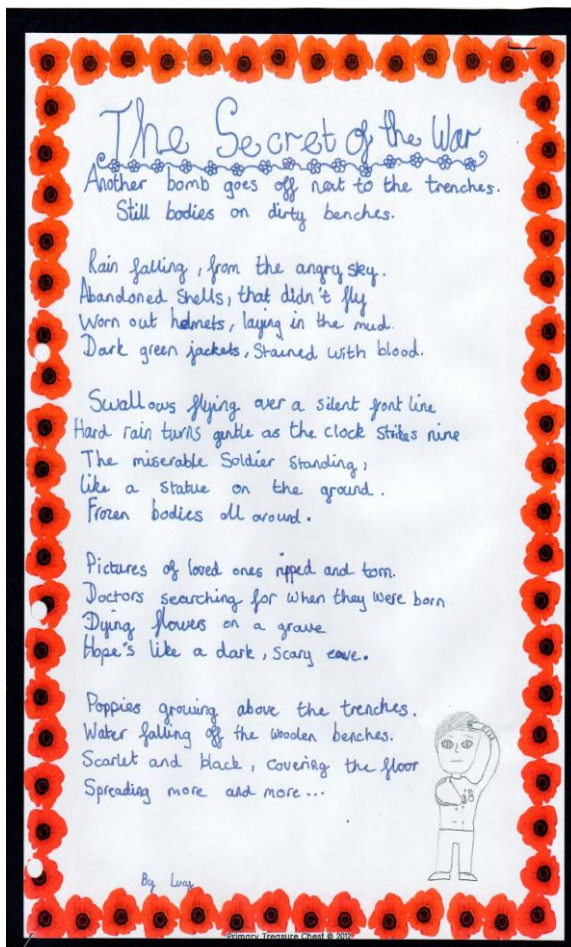 The Secret of the War
Another bomb goes off next to the trenches.
Still bodies on dirty benches.
Rain falling, from the angry sky.
Abandoned shells, that didn't fly
Worn out helmets, laying in the mud.
Dark green jackets, stained with blood.
Swallows flying over a silent front line
Hard rain turns gentle as the clock strikes nine
The miserable Soldier standing,
like a statue on the ground.
Frozen bodies all around.
Pictures of loved ones ripped and torn.
Doctors searching for when they were born
Dying flowers on a grave
Hope's like a dark, scary cave.
Poppies growing above the trenches.
Water falling off the wooden benches.
Scarlet and black, covering the floor
Spreading more and more...
By Lucy
Primary Treasure Chest © 2012